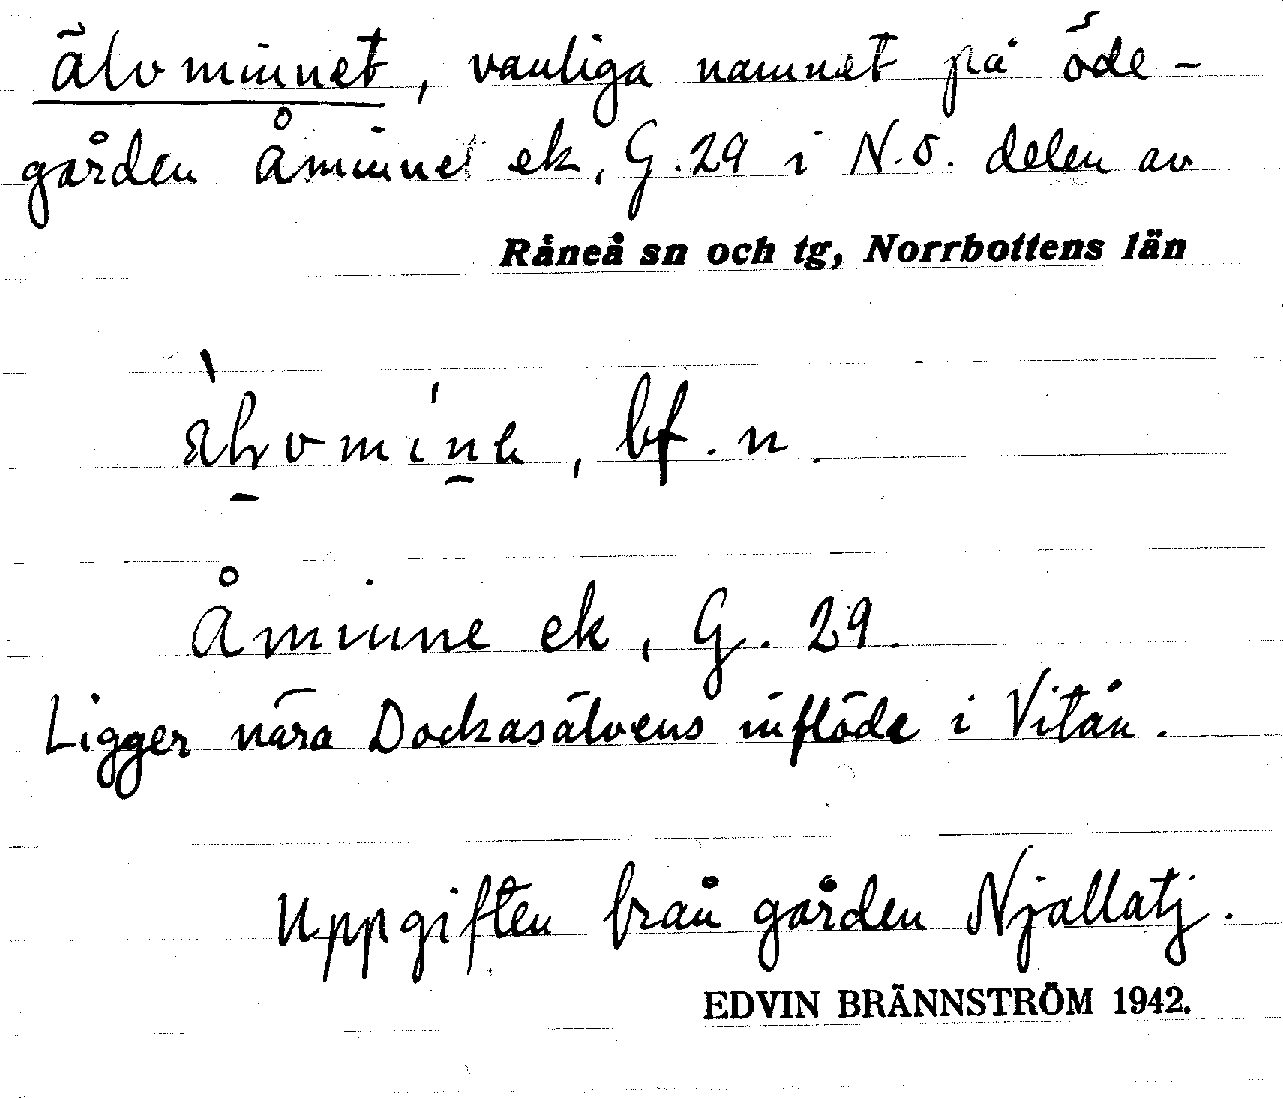 älvminnet, vanliga namnet på öde-
gården Åminnet ek, G. 29 i N.ö. delen av
Råneå sn och tg, Norrbottens län
bf. n.
Åminne ek, G. 29.
Ligger nära Dockasälvens inflöde i Vitån.
Uppgiften från gården Njallatj.
EDVIN BRÄNNSTRÖM 1942.